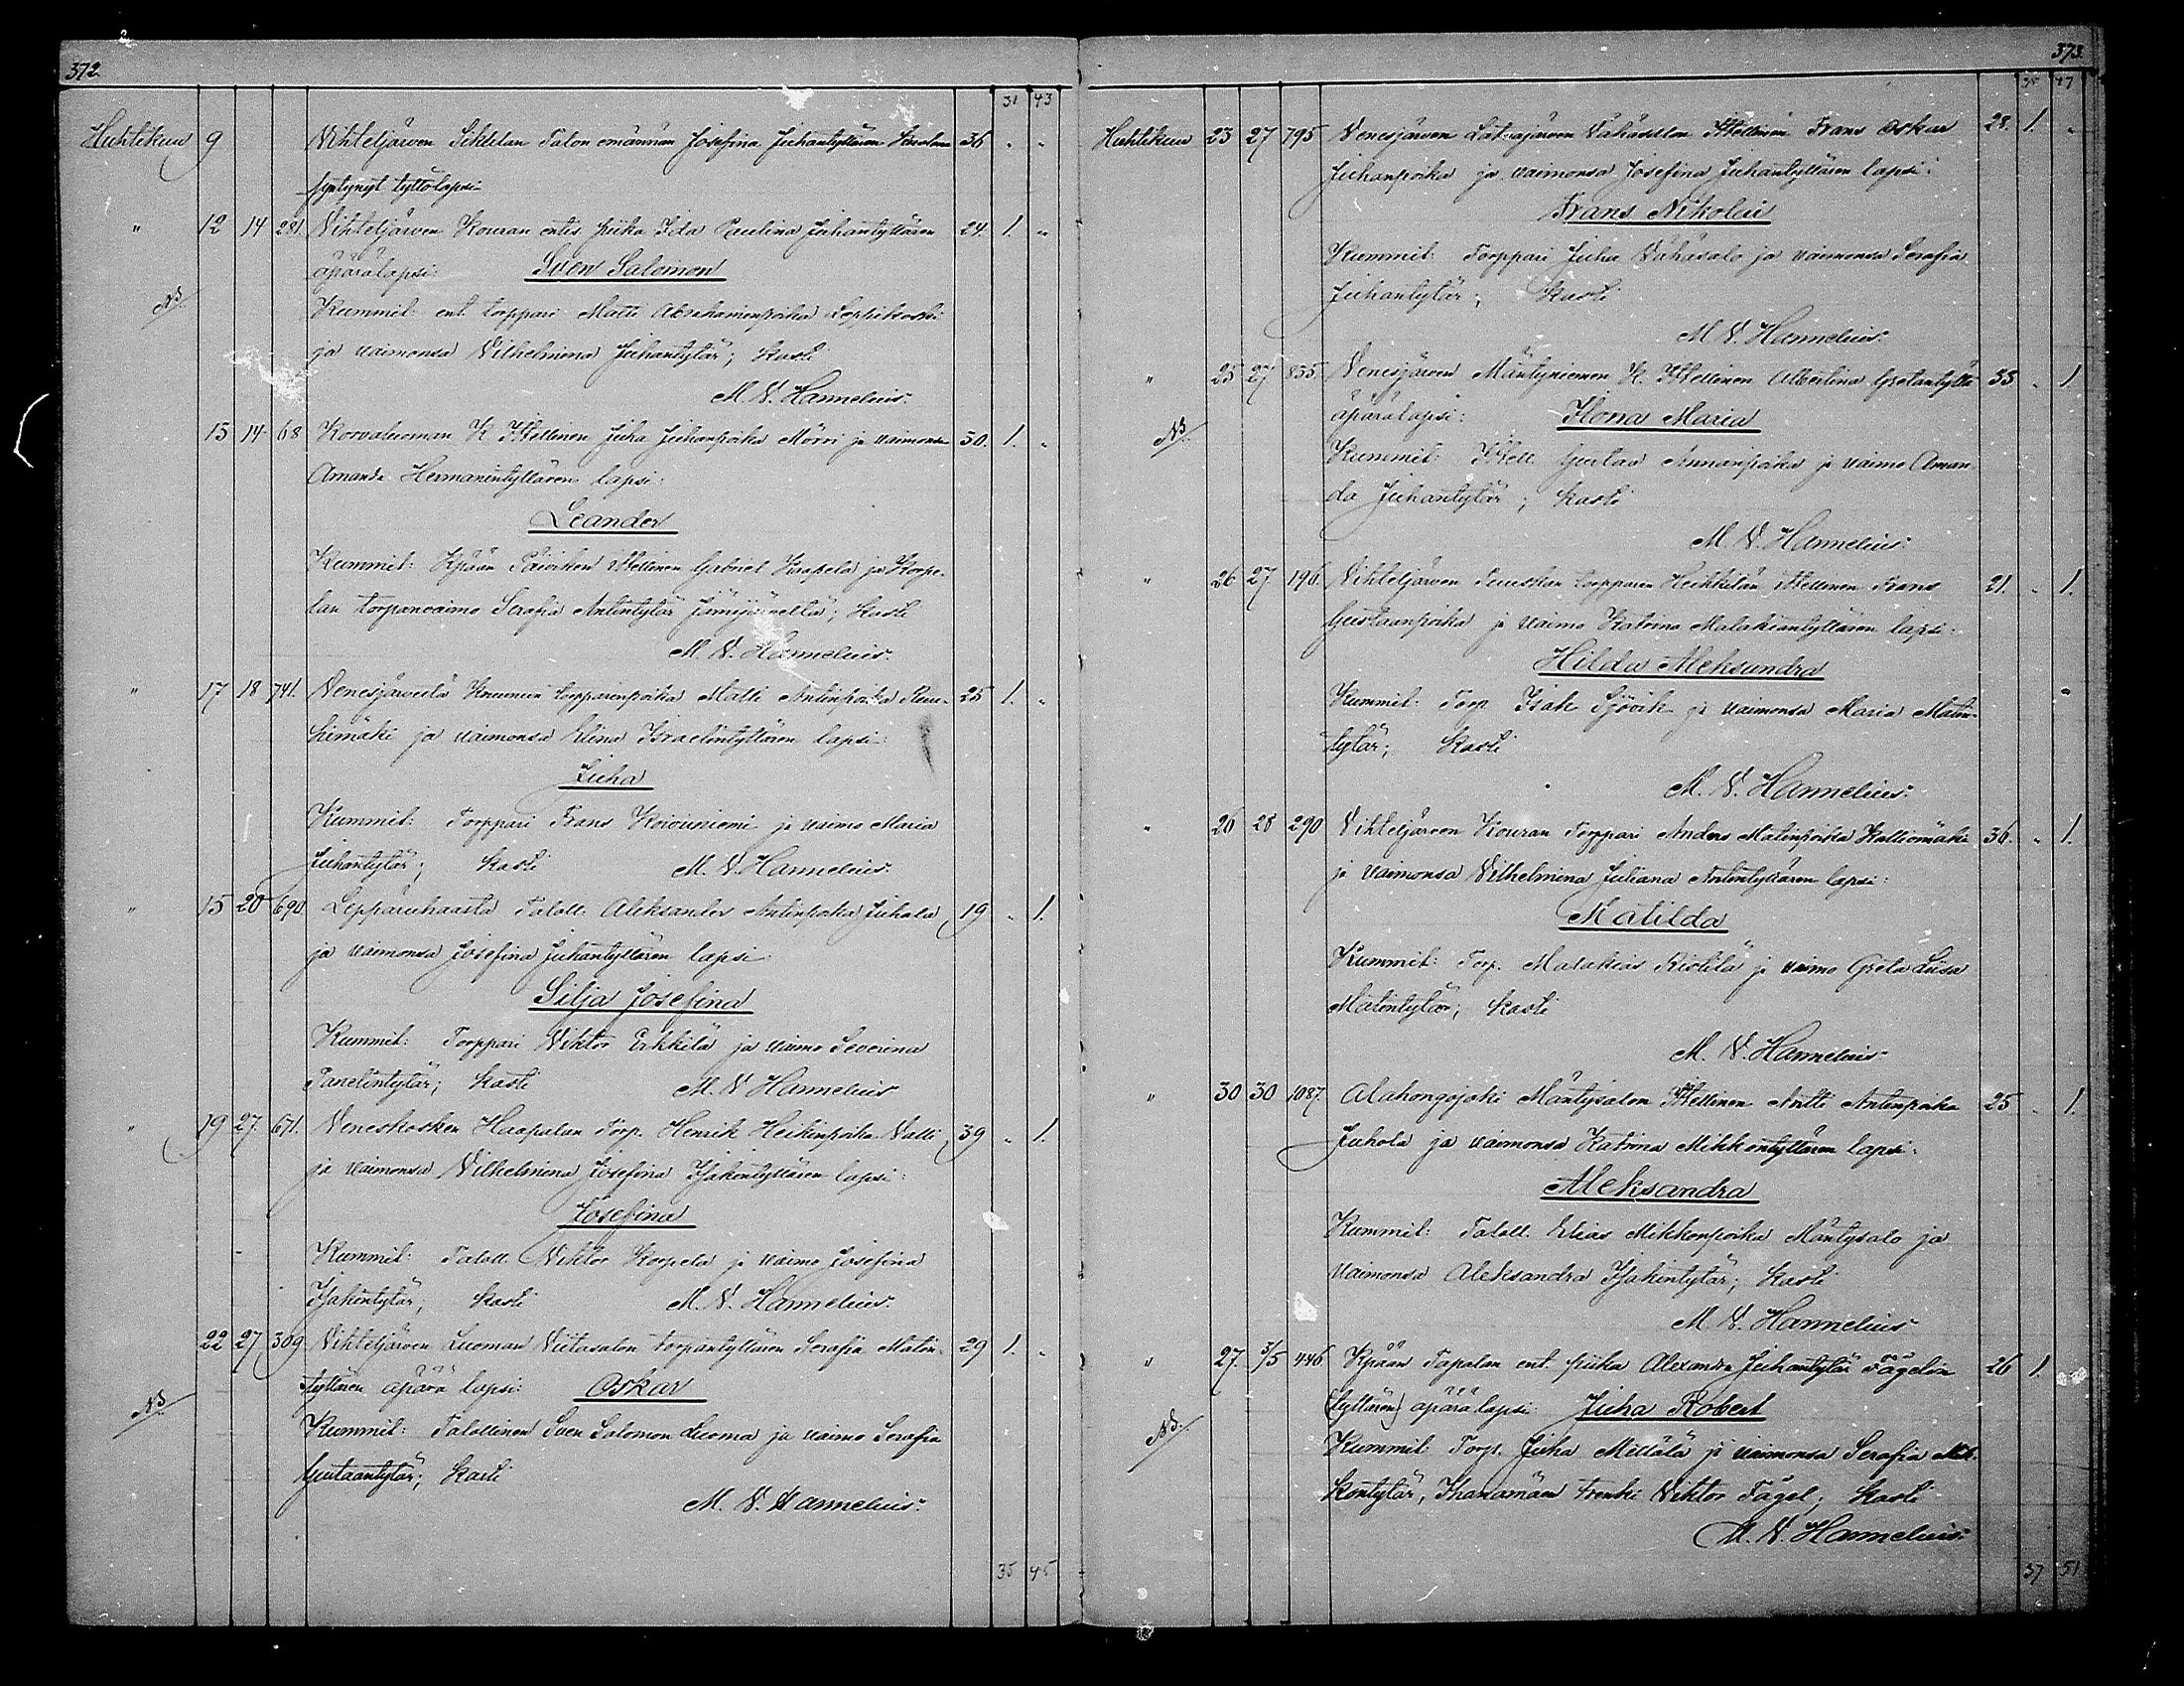 372.
31 43
Huhtikuu 9 Vihteljärven Sihtilan Talon emännän Josefina Juhantyttären 36 " "
syntynyt tyttölapsi
" 12 14 281. Vihteljärven Kouran entis piika Ida Paulina Juhantyttären 24. 1. "
äpärälapsi: Sven Salomon
NB. Kummit: ent. torppari Matti Abrahaminpoika Leppikoski
ja vaimonsa Vilhelmina Juhantytär; kasti
M. V. Hannelius.
13 14 68 Korvaluoman K. Itsellinen Juha Juhanpoika Mörri ja vaimonsa 30. 1. "
Amanda Hermanintyttären lapsi:
Leander
Kummit: Kpään Päivikon Itsellinen Gabriel Haapela ja Korpe-
lan torpanvaimo Serafia Antintytär Jämijärveltä; kasti
M. V. Hannelius.
" 17 18 741. Venesjärveltä torpparinpoika Matti Antinpoika 25 1. "
ja vaimonsa Elina Israelintyttären lapsi:
Juha
Kummit: Torppari Frans Koivuniemi ja vaimo Maria
Juhantytär; kasti M. V. Hannelius.
" 15 20 690 Leppäruhaasta Taloll. Aleksander Antinpoika Juhola 19 " 1.
ja vaimonsa Josefina Juhantyttären lapsi
Silja Josefina
Kummit: Torppari Viktor Erkkilä ja vaimo Severina
Panelintytär; kasti M. V. Hannelius
" 19 27. 671. Veneskosken Haapalan Torp. Henrik Heikinpoika Valli 39 " 1.
ja vaimonsa Vilhelmina Josefina Isakintyttären lapsi:
Josefina
Kummit: Taloll. Viktor Korpela ja vaimo Josefina
Isakintytär; kasti M. V. Hannelius.
22 27 309 Vihteljärven Luoman Viitasalon torpantyttären Serafia Matin- 29 1. "
tyttären äpärä lapsi: Oskar
NB. Kummit: Talollinen Sven Salomon Luoma ja vaimo Serafia
Gustaantytär; kasti
M. V. Hannelius.
35 45
373.
35 47
Huhtikuu 23 27 795 Venesjärven Latvajärven Vähäsalon Itsellinen Frans Oskar 28. 1. "
Juhanpoika ja vaimonsa Josefina Juhantyttären lapsi:
Frans Nikolai
Kummit: Torppari Juha Vähäsalo ja vaimonsa Serafia
Juhantytär; kasti
M. V. Hannelius.
" 25 27 835. Venesjärven Mäntyniemen K. Itsellinen Albertina 33 " 1
äpärälapsi: Ilona Maria
NB. Kummit: Itsell. Gustav Annanpoika ja vaimo Aman-
da Juhantytär; kasti
M. V. Hannelius.
" 26 27 196. Vihteljärven torpparin Heikkilän Itsellinen Frans 21. " 1.
Gustaanpoika ja vaimo Katrina Malakiantyttären lapsi:
Hilda Aleksandra
Kummit: Torp. Isak Sjövik ja vaimonsa Maria Matin-
tytär; kasti
M. V. Hannelius.
" 26 28 290 Vihteljärven Kouran Torppari Anders Matinpoika Kalliomäki 36. " 1.
ja vaimonsa Vilhelmina Juliana Antintyttären lapsi:
Matilda
Kummit: Torp. Malakias Ristilä ja vaimo Greta Liisa
Matintytär; kasti
M. V. Hannelius
" 30 30 1087. Alahongojoki Mäntysalon Itsellinen Antti Antinpoika 25 " 1.
Juhola ja vaimonsa Katrina Mikkontyttären lapsi:
Aleksandra
Kummit: Taloll. Elias Mikkonpoika Mäntysalo ja
vaimonsa Aleksandra Isakintytär; kasti
M. V. Hannelius
" 27. 3/5 446 Kpään Tapalan ent. piika Alexandra Juhantytär Fågelin 26 1.
(tyttären) äpärälapsi: Juha Robert
NB. Kummit: Torp. Juha Mellälä ja vaimonsa Serafia Mik-
kontytär, Ikanamäen trenki Viktor Fågel; kasti
M. V. Hannelius.
37 51